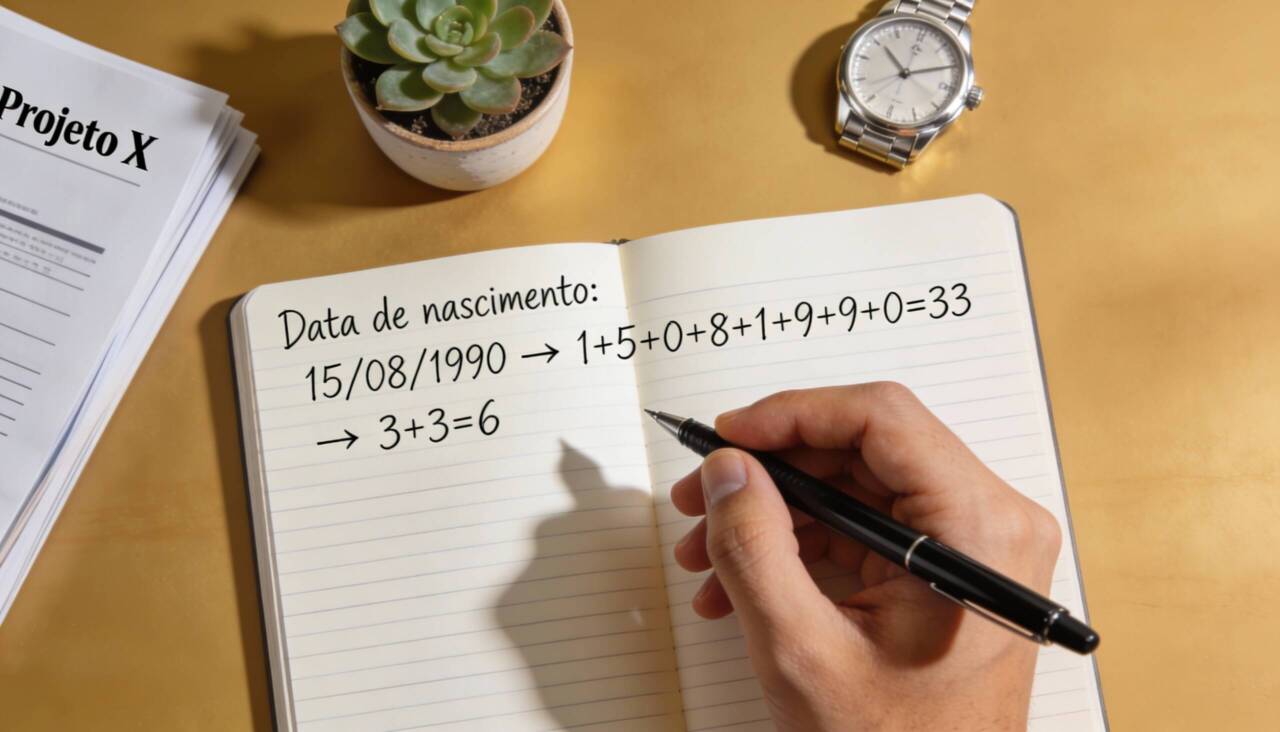 Projeto X
Data de nascimento:
15/08/1990 → 1+5+0+8+1+9+9+0=33
→ 3+3=6